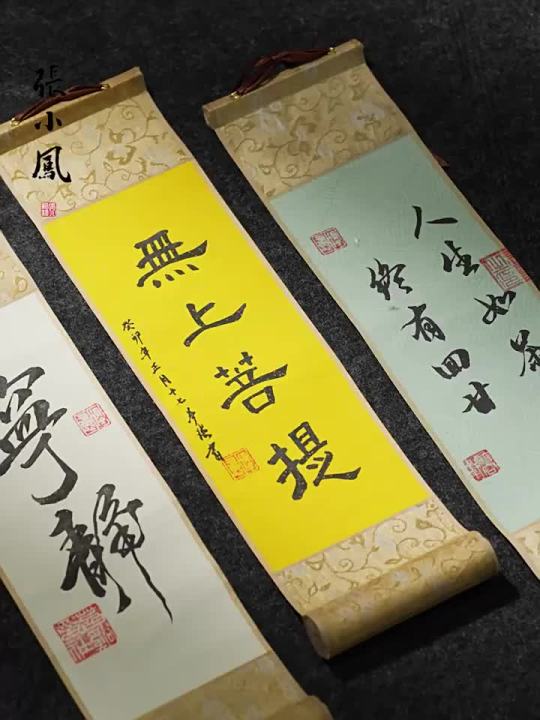 張小鳳
寧靜
無上菩提
癸卯年正月十七
人生如茶
終有回甘